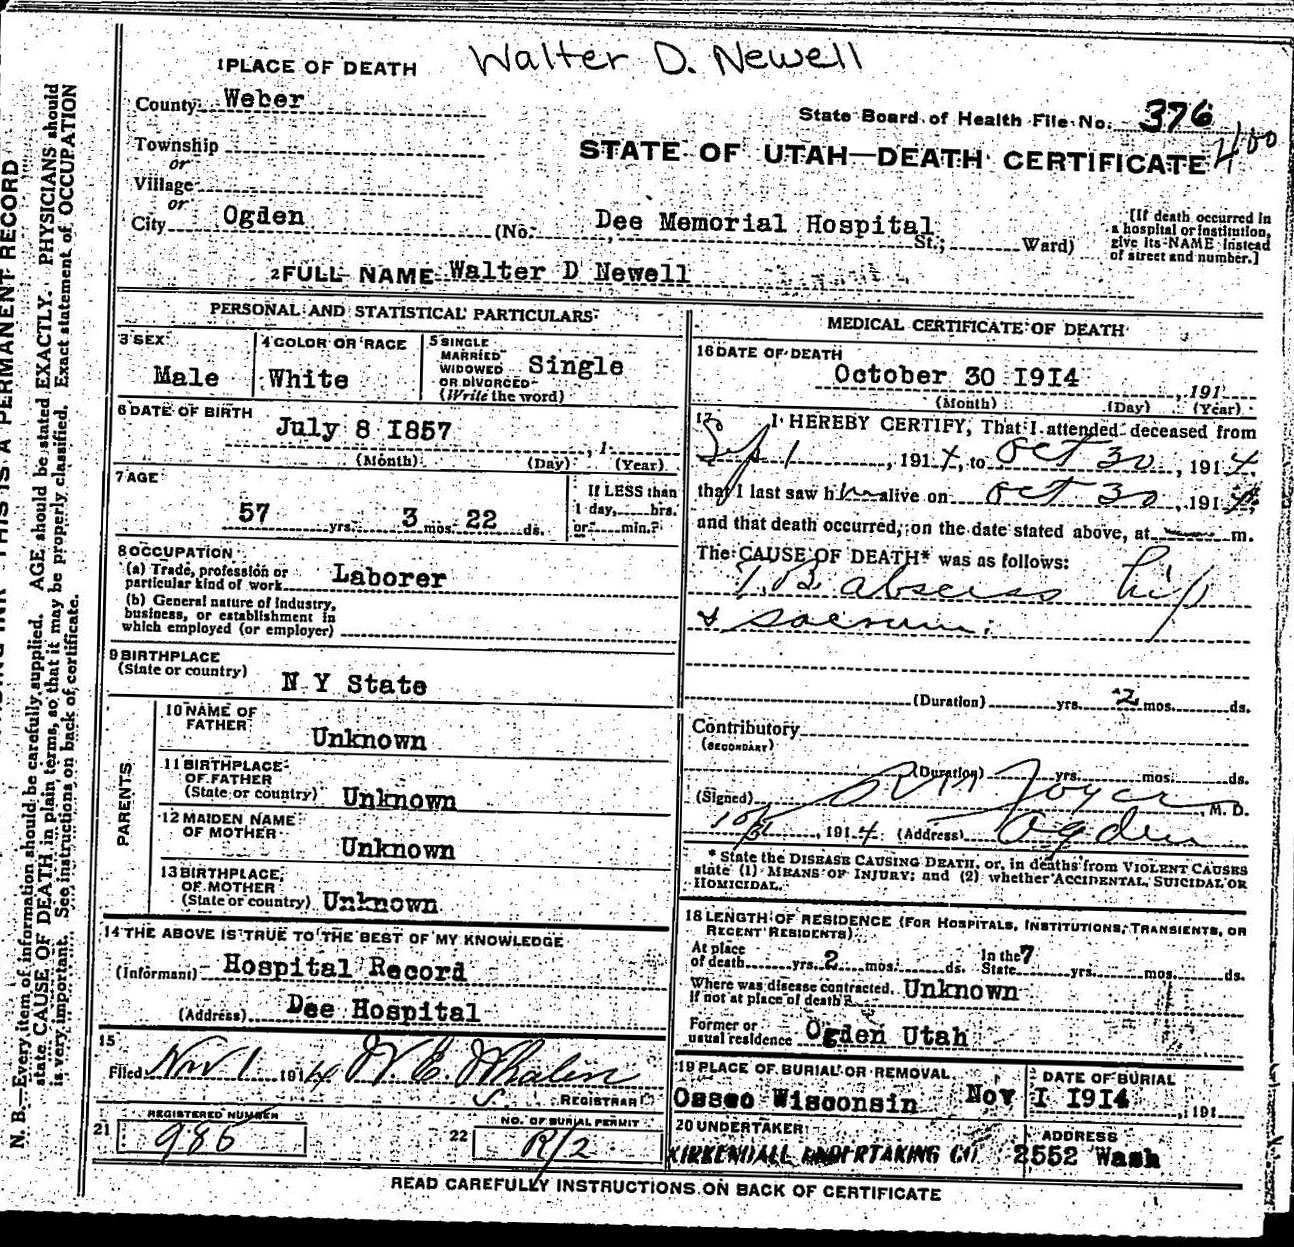 Walter D. Newell
1 PLACE OF DEATH
County Weber
State Board of Health File No. 376
400
Township
STATE OF UTAH—DEATH CERTIFICATE
or
Village
or
City Ogden (No. Dee Memorial Hospital St.; Ward)
[If death occurred in
a hospital or institution,
give its NAME instead
of street and number.]
2 FULL NAME Walter D Newell
PERSONAL AND STATISTICAL PARTICULARS
3 SEX
Male
4 COLOR OR RACE
White
5 SINGLE
MARRIED
WIDOWED
OR DIVORCED
(Write the word)
Single
6 DATE OF BIRTH
July 8 1857 , 1
(Month) (Day) (Year)
7 AGE
57 yrs. 3 mos. 22 ds.
If LESS than
1 day, hrs.
or min.?
8 OCCUPATION
(a) Trade, profession or
particular kind of work Laborer
(b) General nature of industry,
business, or establishment in
which employed (or employer)
9 BIRTHPLACE
(State or country)
N Y State
PARENTS
10 NAME OF
FATHER
Unknown
11 BIRTHPLACE
OF FATHER
(State or country) Unknown
12 MAIDEN NAME
OF MOTHER
Unknown
13 BIRTHPLACE
OF MOTHER
(State or country) Unknown
14 THE ABOVE IS TRUE TO THE BEST OF MY KNOWLEDGE
(Informant) Hospital Record
(Address) Dee Hospital
15
Filed Nov 1 1914 W. E. Whalen
REGISTRAR
REGISTERED NUMBER
21 986
NO. OF BURIAL PERMIT
22 R/2
MEDICAL CERTIFICATE OF DEATH
16 DATE OF DEATH
October 30 1914 , 191
(Month) (Day) (Year)
17 I HEREBY CERTIFY, That I attended deceased from
Sep 1 , 1914, to Oct 30 , 1914,
that I last saw him alive on Oct 30 , 1914,
and that death occurred, on the date stated above, at m.
The CAUSE OF DEATH* was as follows:
T.B. abscess hip
& sacrum.
(Duration) yrs. 2 mos. ds.
Contributory
(SECONDARY)
(Duration) yrs. mos. ds.
(Signed) Joyce , M. D.
10/31 , 1914 (Address) Ogden
* State the DISEASE CAUSING DEATH, or, in deaths from VIOLENT CAUSES
state (1) MEANS OF INJURY; and (2) whether ACCIDENTAL, SUICIDAL OR
HOMICIDAL.
18 LENGTH OF RESIDENCE (FOR HOSPITALS, INSTITUTIONS, TRANSIENTS, OR
RECENT RESIDENTS)
At place
of death yrs. 2 mos. ds.
In the
State 7 yrs. mos. ds.
Where was disease contracted,
if not at place of death? Unknown
Former or
usual residence Ogden Utah
19 PLACE OF BURIAL OR REMOVAL
Osseo Wisconsin
DATE OF BURIAL
Nov 1 1914 , 191
20 UNDERTAKER
KIRKENDALL UNDERTAKING CO.
ADDRESS
2552 Wash
READ CAREFULLY INSTRUCTIONS ON BACK OF CERTIFICATE
THIS IS A PERMANENT RECORD
N. B.—Every item of information should be carefully supplied. AGE should be stated EXACTLY. PHYSICIANS should
state CAUSE OF DEATH in plain terms, so that it may be properly classified. Exact statement of OCCUPATION
is very important. See instructions on back of certificate.